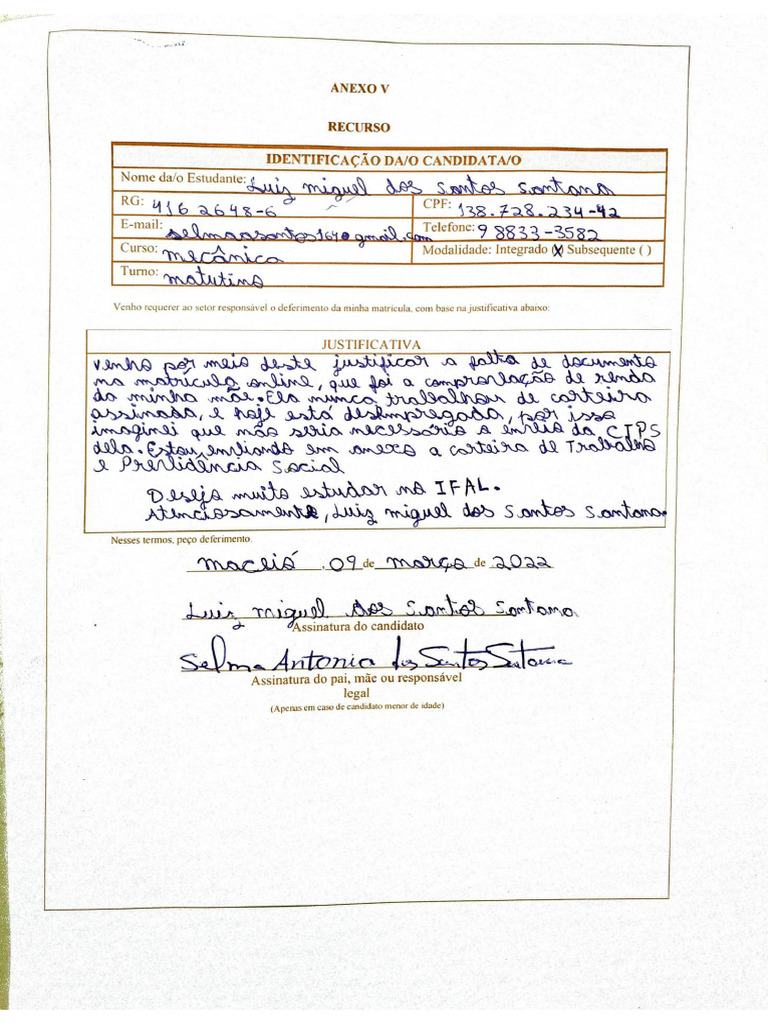 ANEXO V
RECURSO
IDENTIFICAÇÃO DA/O CANDIDATA/O
Nome da/o Estudante: Luiz Miguel dos Santos Santana
RG: 416 2648-6 CPF: 138.728.234-42
E-mail: selmaasantos164@gmail.com Telefone: 9 8833-3582
Curso: mecânica Modalidade: Integrado (X) Subsequente ( )
Turno: matutino
Venho requerer ao setor responsável o deferimento da minha matrícula, com base na justificativa abaixo:
JUSTIFICATIVA
Venho por meio deste justificar a falta de documento
na matrícula online, que foi a comprovação de renda
da minha mãe. Ela nunca trabalhou de carteira
assinada, e hoje está desempregada, por isso
imaginei que não seria necessário o envio da CTPS
dela. Estou enviando em anexo a carteira de Trabalho
e Previdência Social
Desejo muito estudar no IFAL.
Atenciosamente, Luiz Miguel dos Santos Santana.
Nesses termos, peço deferimento.
Maceió , 09 de março de 2022
Luiz Miguel dos Santos Santana
Assinatura do candidato
Selma Antonia dos Santos Santana
Assinatura do pai, mãe ou responsável
legal
(Apenas em caso de candidato menor de idade)